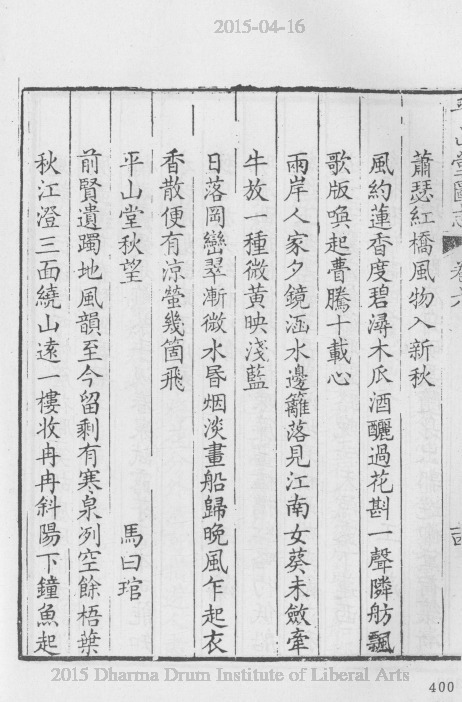 2015-04-16
平山堂圖志
卷六
蕭瑟紅橋風物入新秋
風約蓮香度碧潯木瓜酒釃過花斟一聲隣舫飄
歌版喚起瞢騰十載心
兩岸人家夕鏡涵水邊籬落見江南女葵未斂牽
牛放一種微黃映淺藍
日落岡巒翠漸微水昏烟淡畫船歸晚風乍起衣
香散便有凉螢幾箇飛
平山堂秋望 馬曰琯
前賢遺躅地風韻至今留剩有寒泉冽空餘梧葉
秋江澄三面繞山遠一樓收冉冉斜陽下鐘魚起
2015 Dharma Drum Institute of Liberal Arts
400